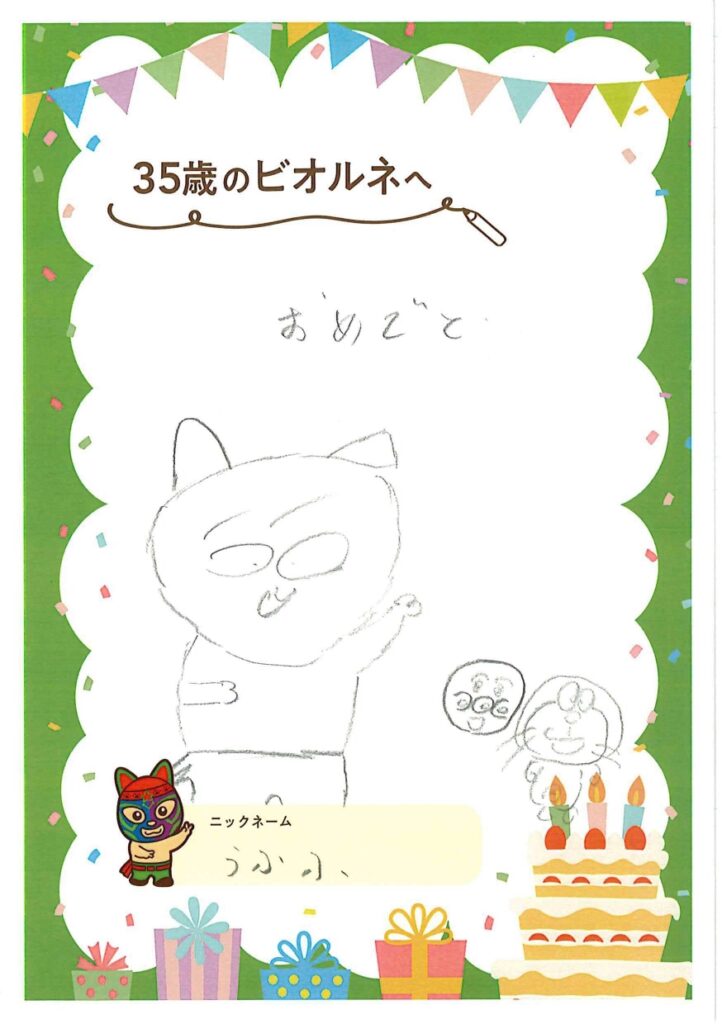 35歳のビオルネへ
おめでと
ニックネーム
うふふ、